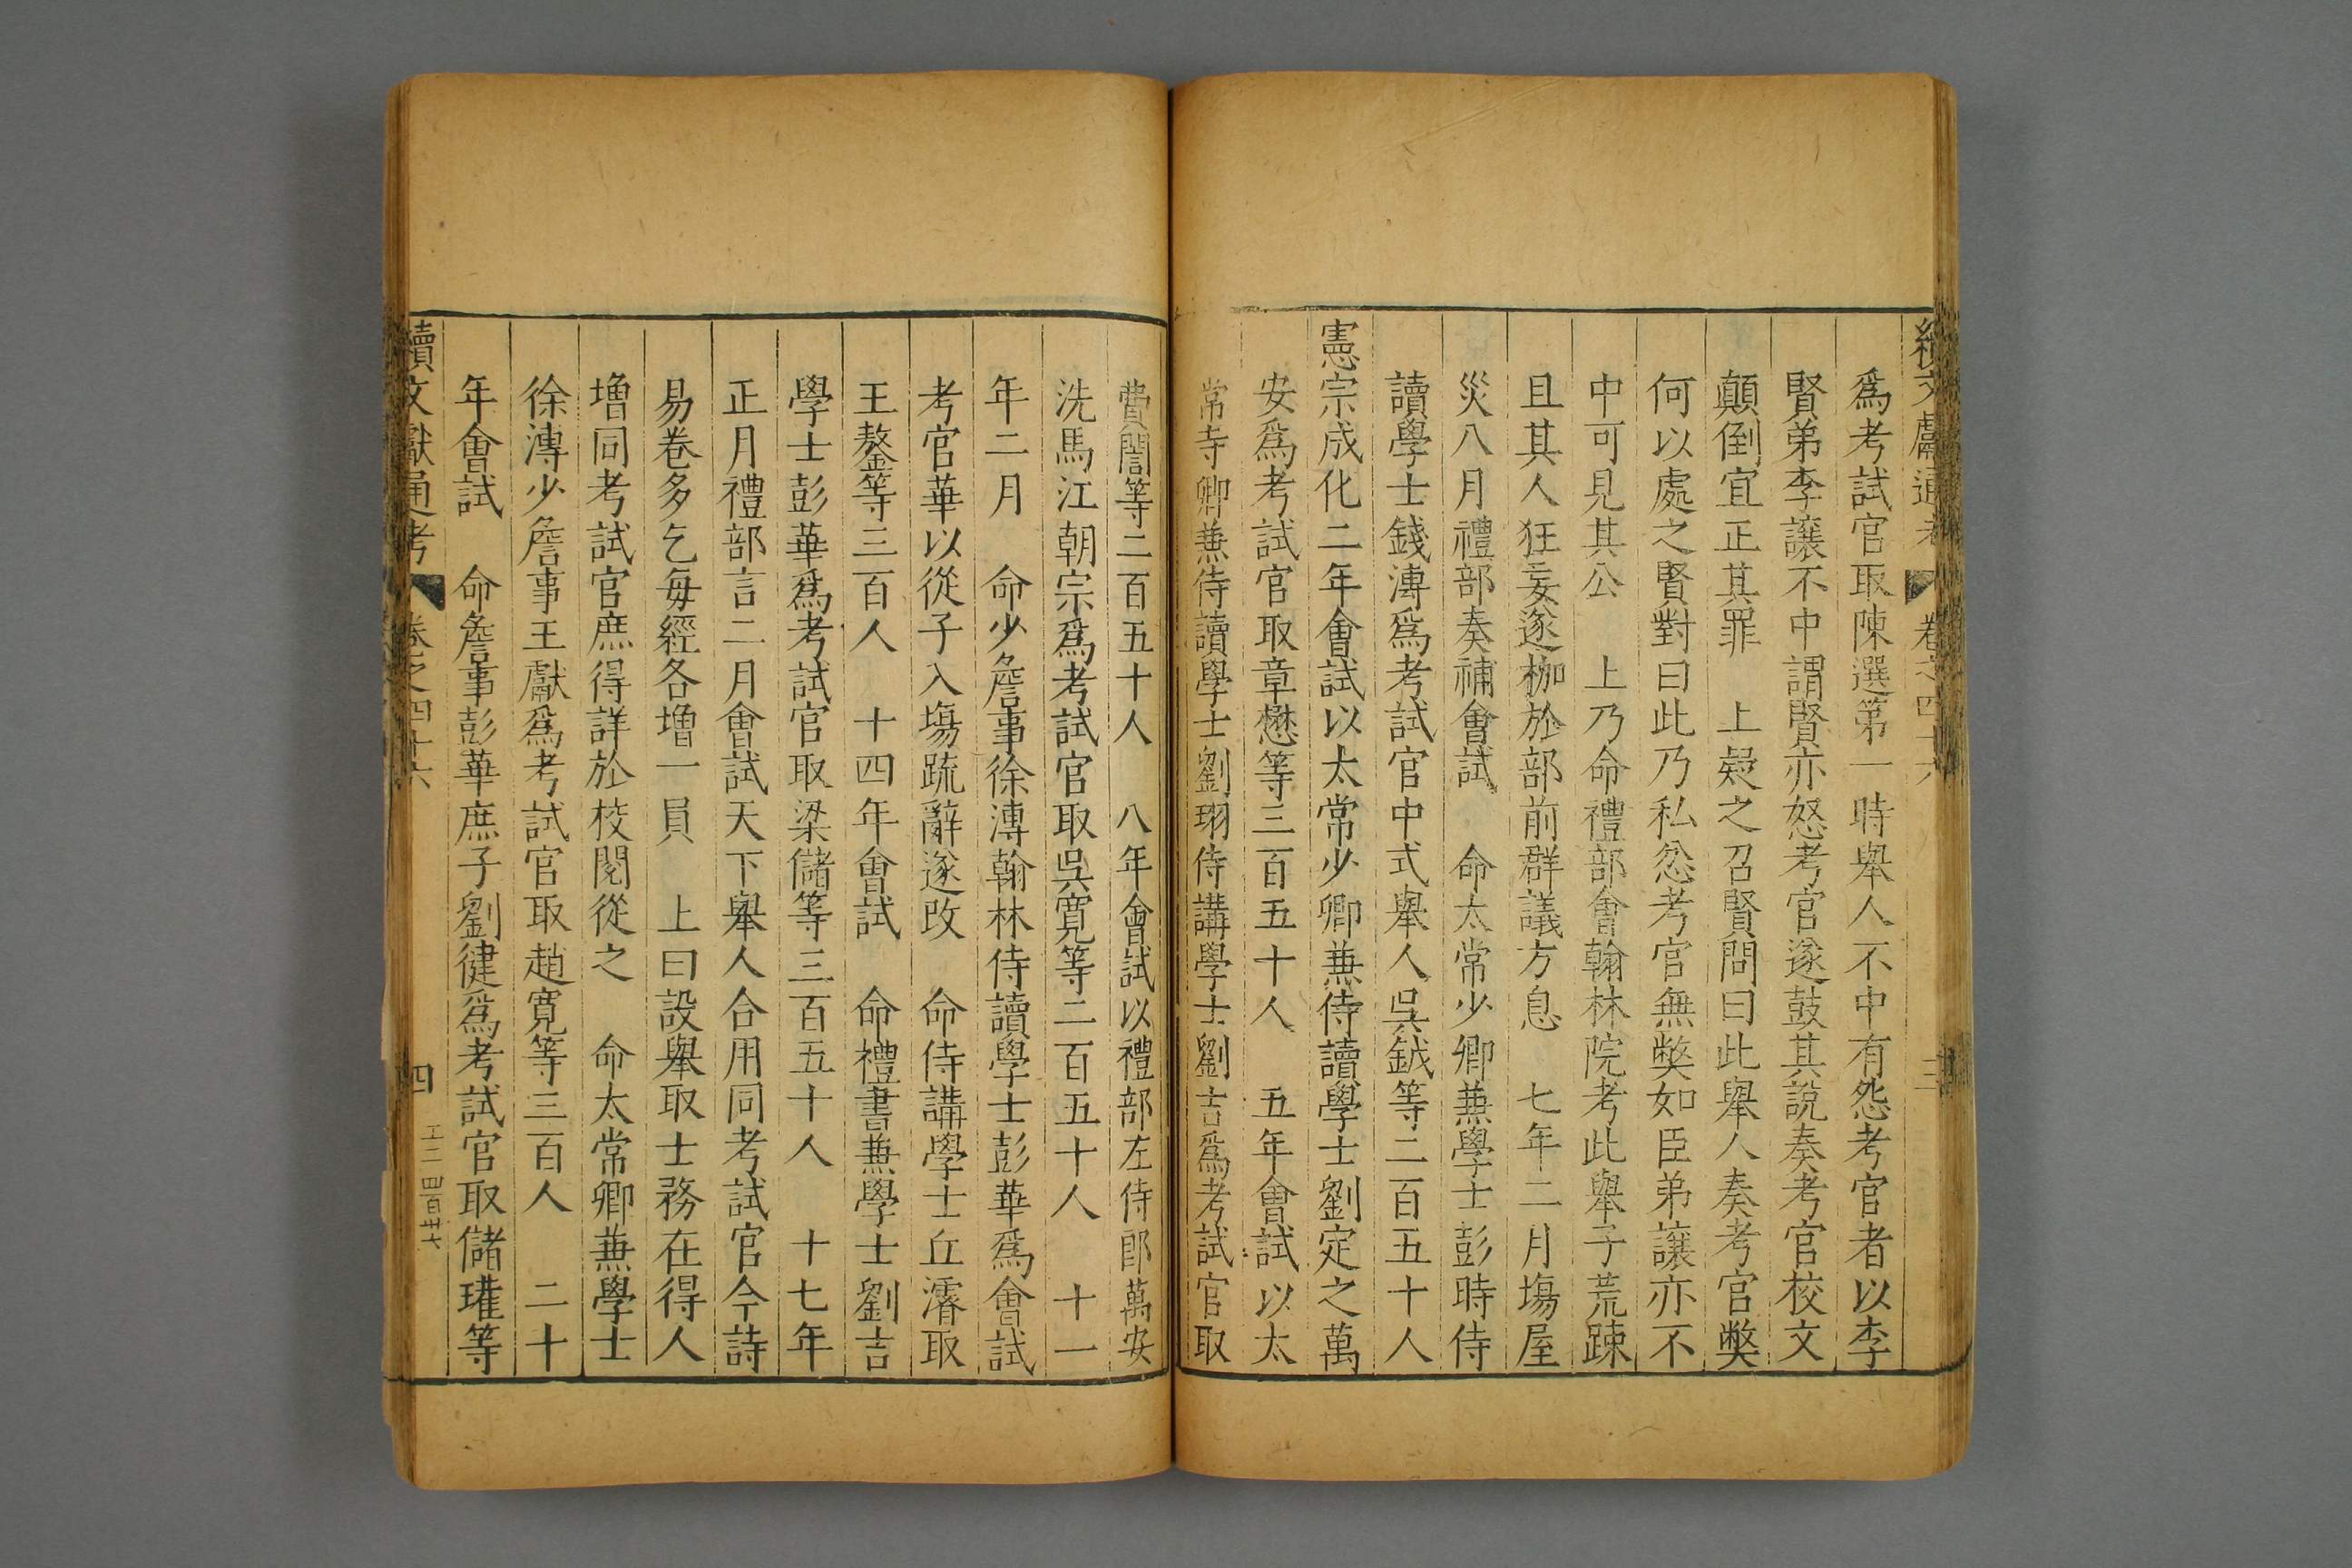 續文獻通考 卷之四十六 三
爲考試官取陳選第一時舉人不中有怨考官者以李
賢弟李讓不中謂賢亦怒考官遂鼓其說奏考官校文
顛倒宜正其罪 上疑之召賢問曰此舉人奏考官弊
何以處之賢對曰此乃私忿考官無弊如臣弟讓亦不
中可見其公 上乃命禮部會翰林院考此舉子荒踈
且其人狂妄遂枷於部前群議方息 七年二月塲屋
災八月禮部奏補會試 命太常少卿兼學士彭時侍
讀學士錢溥爲考試官中式舉人吳鉞等二百五十人
憲宗成化二年會試以太常少卿兼侍讀學士劉定之萬
安爲考試官取章懋等三百五十人 五年會試以太
常寺卿兼侍讀學士劉珝侍講學士劉吉爲考試官取
費誾等二百五十人 八年會試以禮部左侍郎萬安
洗馬江朝宗爲考試官取吳寬等二百五十人 十一
年二月 命少詹事徐溥翰林侍讀學士彭華爲會試
考官華以從子入塲疏辭遂改 命侍講學士丘濬取
王鏊等三百人 十四年會試 命禮書兼學士劉吉
學士彭華爲考試官取梁儲等三百五十人 十七年
正月禮部言二月會試天下舉人合用同考試官今詩
易卷多乞每經各增一員 上曰設舉取士務在得人
增同考試官庶得詳於校閱從之 命太常卿兼學士
徐溥少詹事王獻爲考試官取趙寬等三百人 二十
年會試 命詹事彭華庶子劉健爲考試官取儲瓘等
續文獻通考 卷之四十六 四
工二 四百卅七